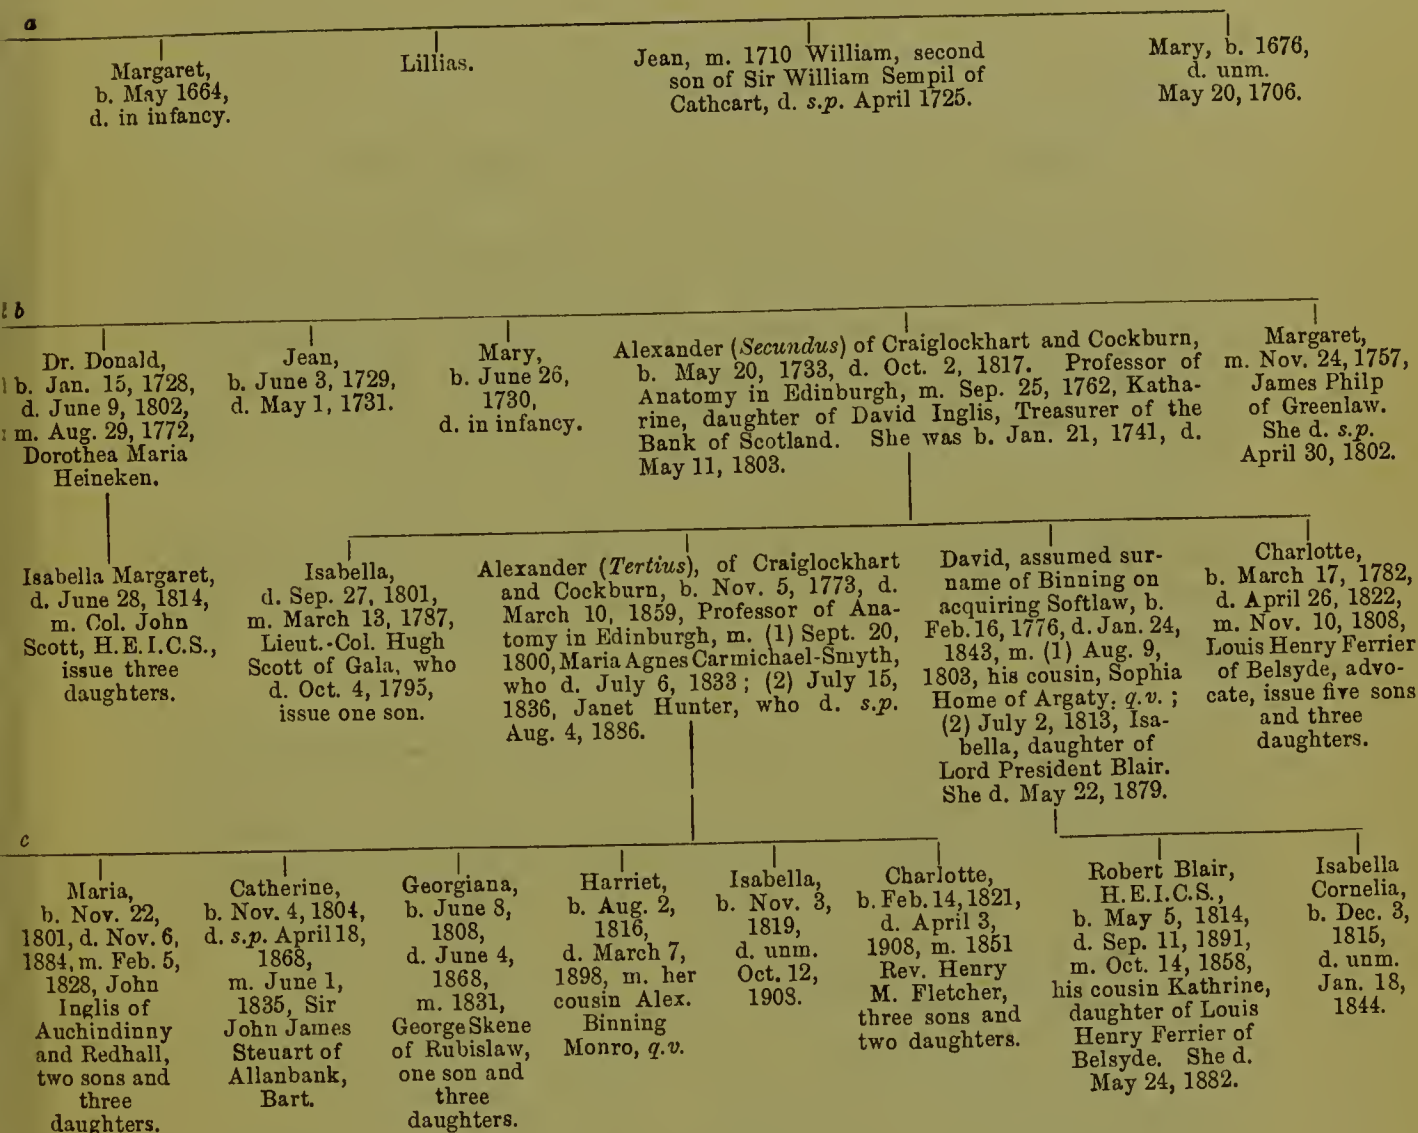 a
Margaret,
b. May 1664,
d. in infancy.
Lillias.
Jean, m. 1710 William, second
son of Sir William Sempil of
Cathcart, d. s.p. April 1725.
Mary, b. 1676,
d. unm.
May 20, 1706.
b
Dr. Donald,
b. Jan. 15, 1728,
d. June 9, 1802,
m. Aug. 29, 1772,
Dorothea Maria
Heineken.
Jean,
b. June 3, 1729,
d. May 1, 1731.
Mary,
b. June 26,
1730,
d. in infancy.
Alexander (Secundus) of Craiglockhart and Cockburn,
b. May 20, 1733, d. Oct. 2, 1817. Professor of
Anatomy in Edinburgh, m. Sep. 25, 1762, Katha-
rine, daughter of David Inglis, Treasurer of the
Bank of Scotland. She was b. Jan. 21, 1741, d.
May 11, 1803.
Margaret,
m. Nov. 24, 1757,
James Philp
of Greenlaw.
She d. s.p.
April 30, 1802.
Isabella Margaret,
d. June 28, 1814,
m. Col. John
Scott, H.E.I.C.S.,
issue three
daughters.
Isabella,
d. Sep. 27, 1801,
m. March 13, 1787,
Lieut.-Col. Hugh
Scott of Gala, who
d. Oct. 4, 1795,
issue one son.
Alexander (Tertius), of Craiglockhart
and Cockburn, b. Nov. 5, 1773, d.
March 10, 1859, Professor of Ana-
tomy in Edinburgh, m. (1) Sept. 20,
1800, Maria Agnes Carmichael-Smyth,
who d. July 6, 1833; (2) July 15,
1836, Janet Hunter, who d. s.p.
Aug. 4, 1886.
David, assumed sur-
name of Binning on
acquiring Softlaw, b.
Feb. 16, 1776, d. Jan. 24,
1843, m. (1) Aug. 9,
1803, his cousin, Sophia
Home of Argaty, q.v. ;
(2) July 2, 1813, Isa-
bella, daughter of
Lord President Blair.
She d. May 22, 1879.
Charlotte,
b. March 17, 1782,
d. April 26, 1822,
m. Nov. 10, 1808,
Louis Henry Ferrier
of Belsyde, advo-
cate, issue five sons
and three
daughters.
c
Maria,
b. Nov. 22,
1801, d. Nov. 6,
1884, m. Feb. 5,
1828, John
Inglis of
Auchindinny
and Redhall,
two sons and
three
daughters.
Catherine,
b. Nov. 4, 1804,
d. s.p. April 18,
1868,
m. June 1,
1835, Sir
John James
Steuart of
Allanbank,
Bart.
Georgiana,
b. June 8,
1808,
d. June 4,
1868,
m. 1831,
George Skene
of Rubislaw,
one son and
three
daughters.
Harriet,
b. Aug. 2,
1816,
d. March 7,
1898, m. her
cousin Alex.
Binning
Monro, q.v.
Isabella,
b. Nov. 3,
1819,
d. unm.
Oct. 12,
1908.
Charlotte,
b. Feb. 14, 1821,
d. April 3,
1908, m. 1851
Rev. Henry
M. Fletcher,
three sons and
two daughters.
Robert Blair,
H.E.I.C.S.,
b. May 5, 1814,
d. Sep. 11, 1891,
m. Oct. 14, 1858,
his cousin Kathrine,
daughter of Louis
Henry Ferrier of
Belsyde. She d.
May 24, 1882.
Isabella
Cornelia,
b. Dec. 3,
1815,
d. unm.
Jan. 18,
1844.